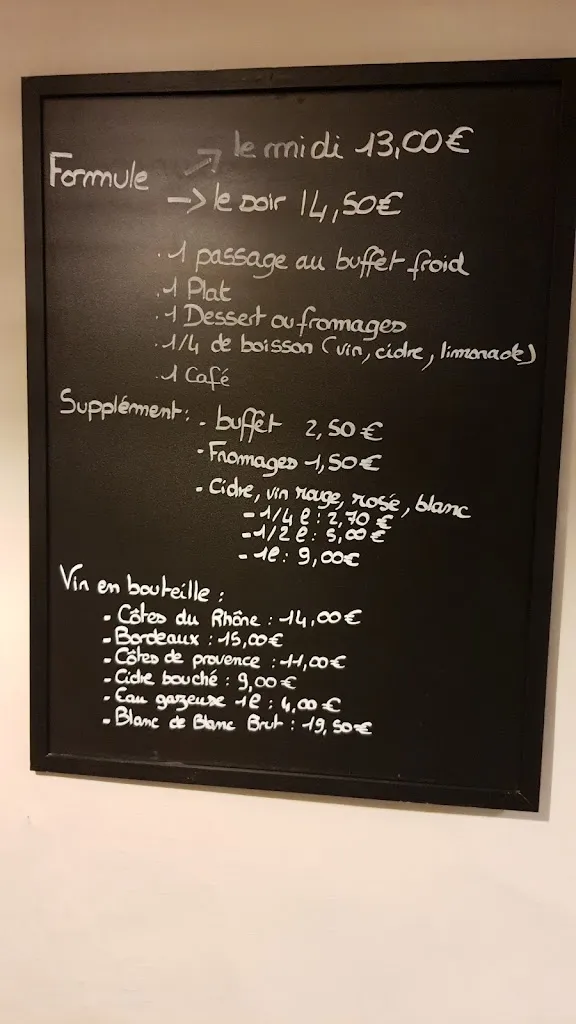 Formule
→ le midi 13,00€
-> le soir 14,50€
. 1 passage au buffet froid
. 1 Plat
. 1 Dessert ou fromages
. 1/4 de boisson (vin, cidre, limonade)
. 1 Café
Supplément: . buffet 2,50€
- Fromages 1,50€
- Cidre, vin rouge, rosé, blanc
- 1/4 l : 2,70 €
- 1/2 l : 5,00 €
- 1l : 9,00€
Vin en bouteille :
- Côtes du Rhône : 14,00€
- Bordeaux : 15,00€
- Côtes de provence : 11,00€
- Cidre bouché : 9,00€
- Eau gazeuse 1l : 4,00€
- Blanc de Blanc Brut : 19,50€